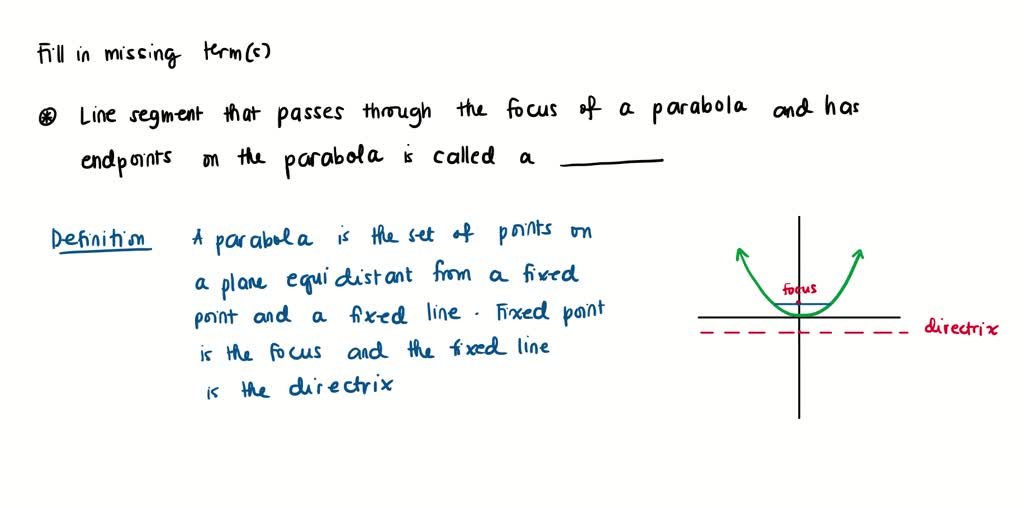 Fill in missing term(s)
⊛ Line segment that passes through the focus of a parabola and has
endpoints on the parabola is called a ________
Definition A parabola is the set of points on
a plane equidistant from a fixed
point and a fixed line. Fixed point
is the focus and the fixed line
is the directrix
focus
directrix